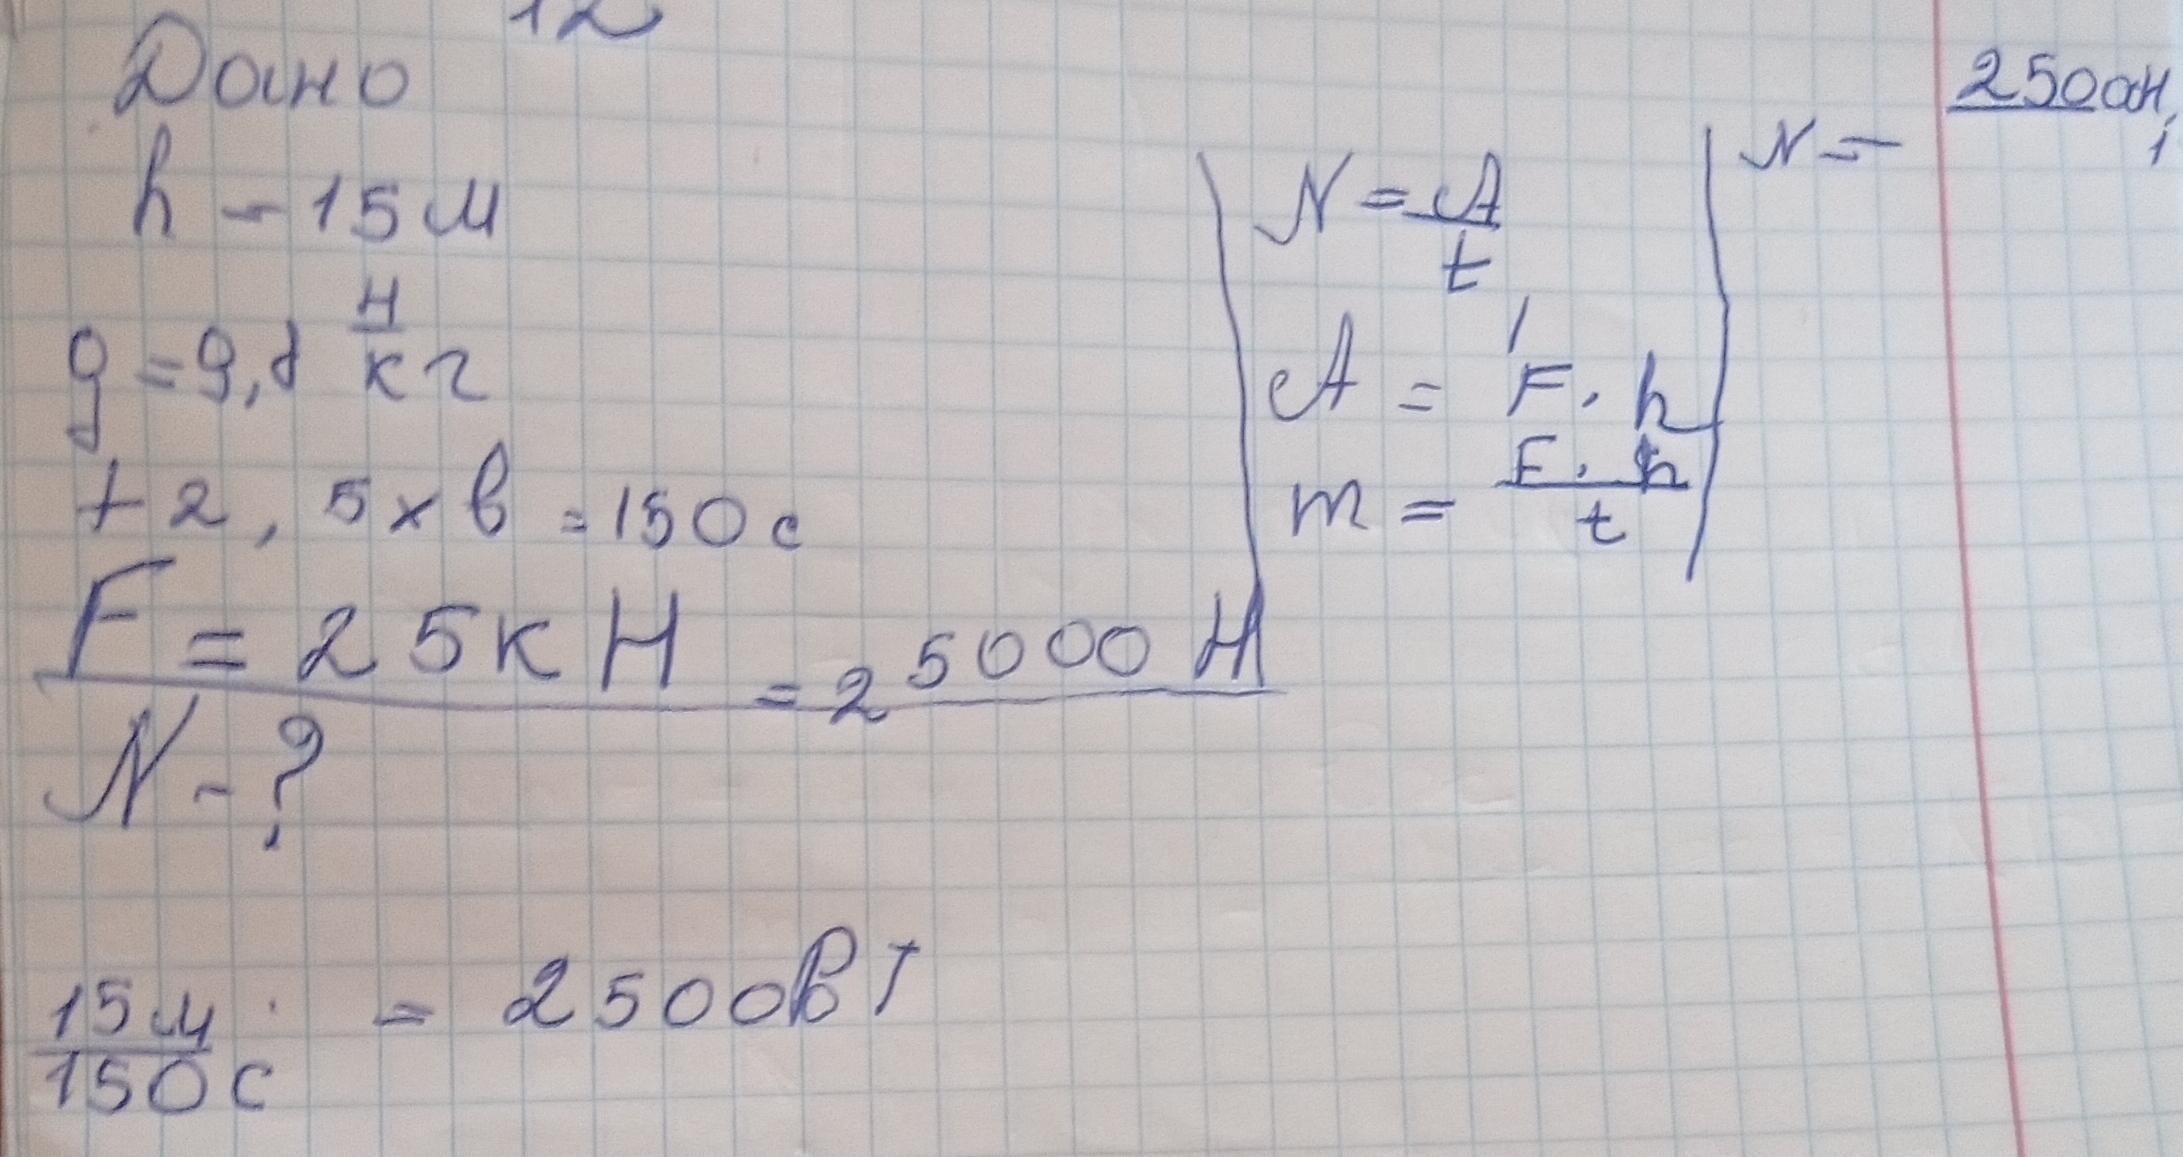 12
Дано
h - 15 м
g = 9,8 Н/кг
t 2, 5 x в = 150 с
F = 25 к Н = 25000 Н
N - ?
N = A/t
A = F · h
m = F · h/t
N = 2500Н
15 м/150 с = 2500Вт